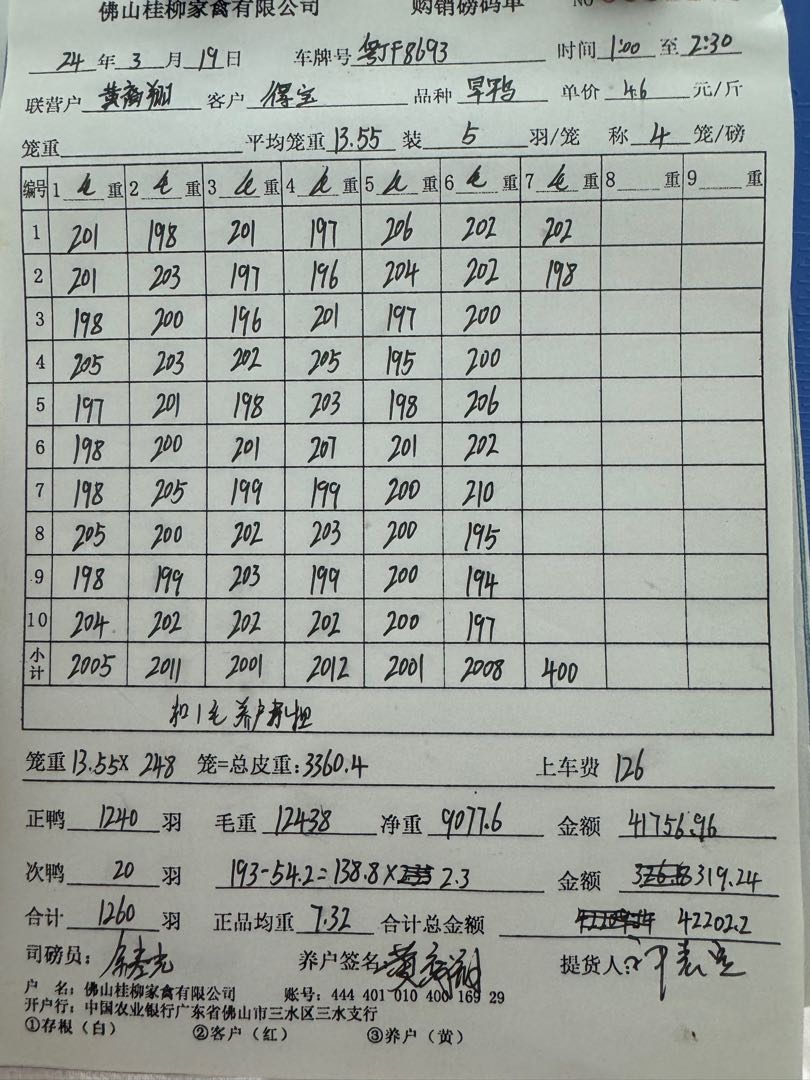 佛山桂柳家禽有限公司 购销磅码单 NO
24 年 3 月 19 日 车牌号 粤JF8693 时间 1:00 至 2:30
联营户 黄裔翔 客户 保宝 品种 旱鸭 单价 4.6 元/斤
笼重 平均笼重 13.55 装 5 羽/笼 称 4 笼/磅
编号 1 毛 重 2 毛 重 3 毛 重 4 毛 重 5 毛 重 6 毛 重 7 毛 重 8 重 9 重
1 201 198 201 197 206 202 202
2 201 203 197 196 204 202 198
3 198 200 196 201 197 200
4 205 203 202 205 195 200
5 197 201 198 203 198 206
6 198 200 201 207 201 202
7 198 205 199 199 200 210
8 205 200 202 203 200 195
9 198 199 203 199 200 194
10 204 202 202 202 200 197
小计 2005 2011 2001 2012 2001 2008 400
扣1毛 养户承担
笼重 13.55X 248 笼=总皮重:3360.4 上车费 126
正鸭 1240 羽 毛重 12438 净重 9077.6 金额 41756.96
次鸭 20 羽 193-54.2=138.8X 2.3 金额 319.24
合计 1260 羽 正品均重 7.32 合计总金额 42202.2
司磅员: 养户签名 黄裔翔 提货人:
户 名: 佛山桂柳家禽有限公司 账号: 444 401 010 400 169 29
开户行: 中国农业银行广东省佛山市三水区三水支行
①存根(白) ②客户(红) ③养户(黄)